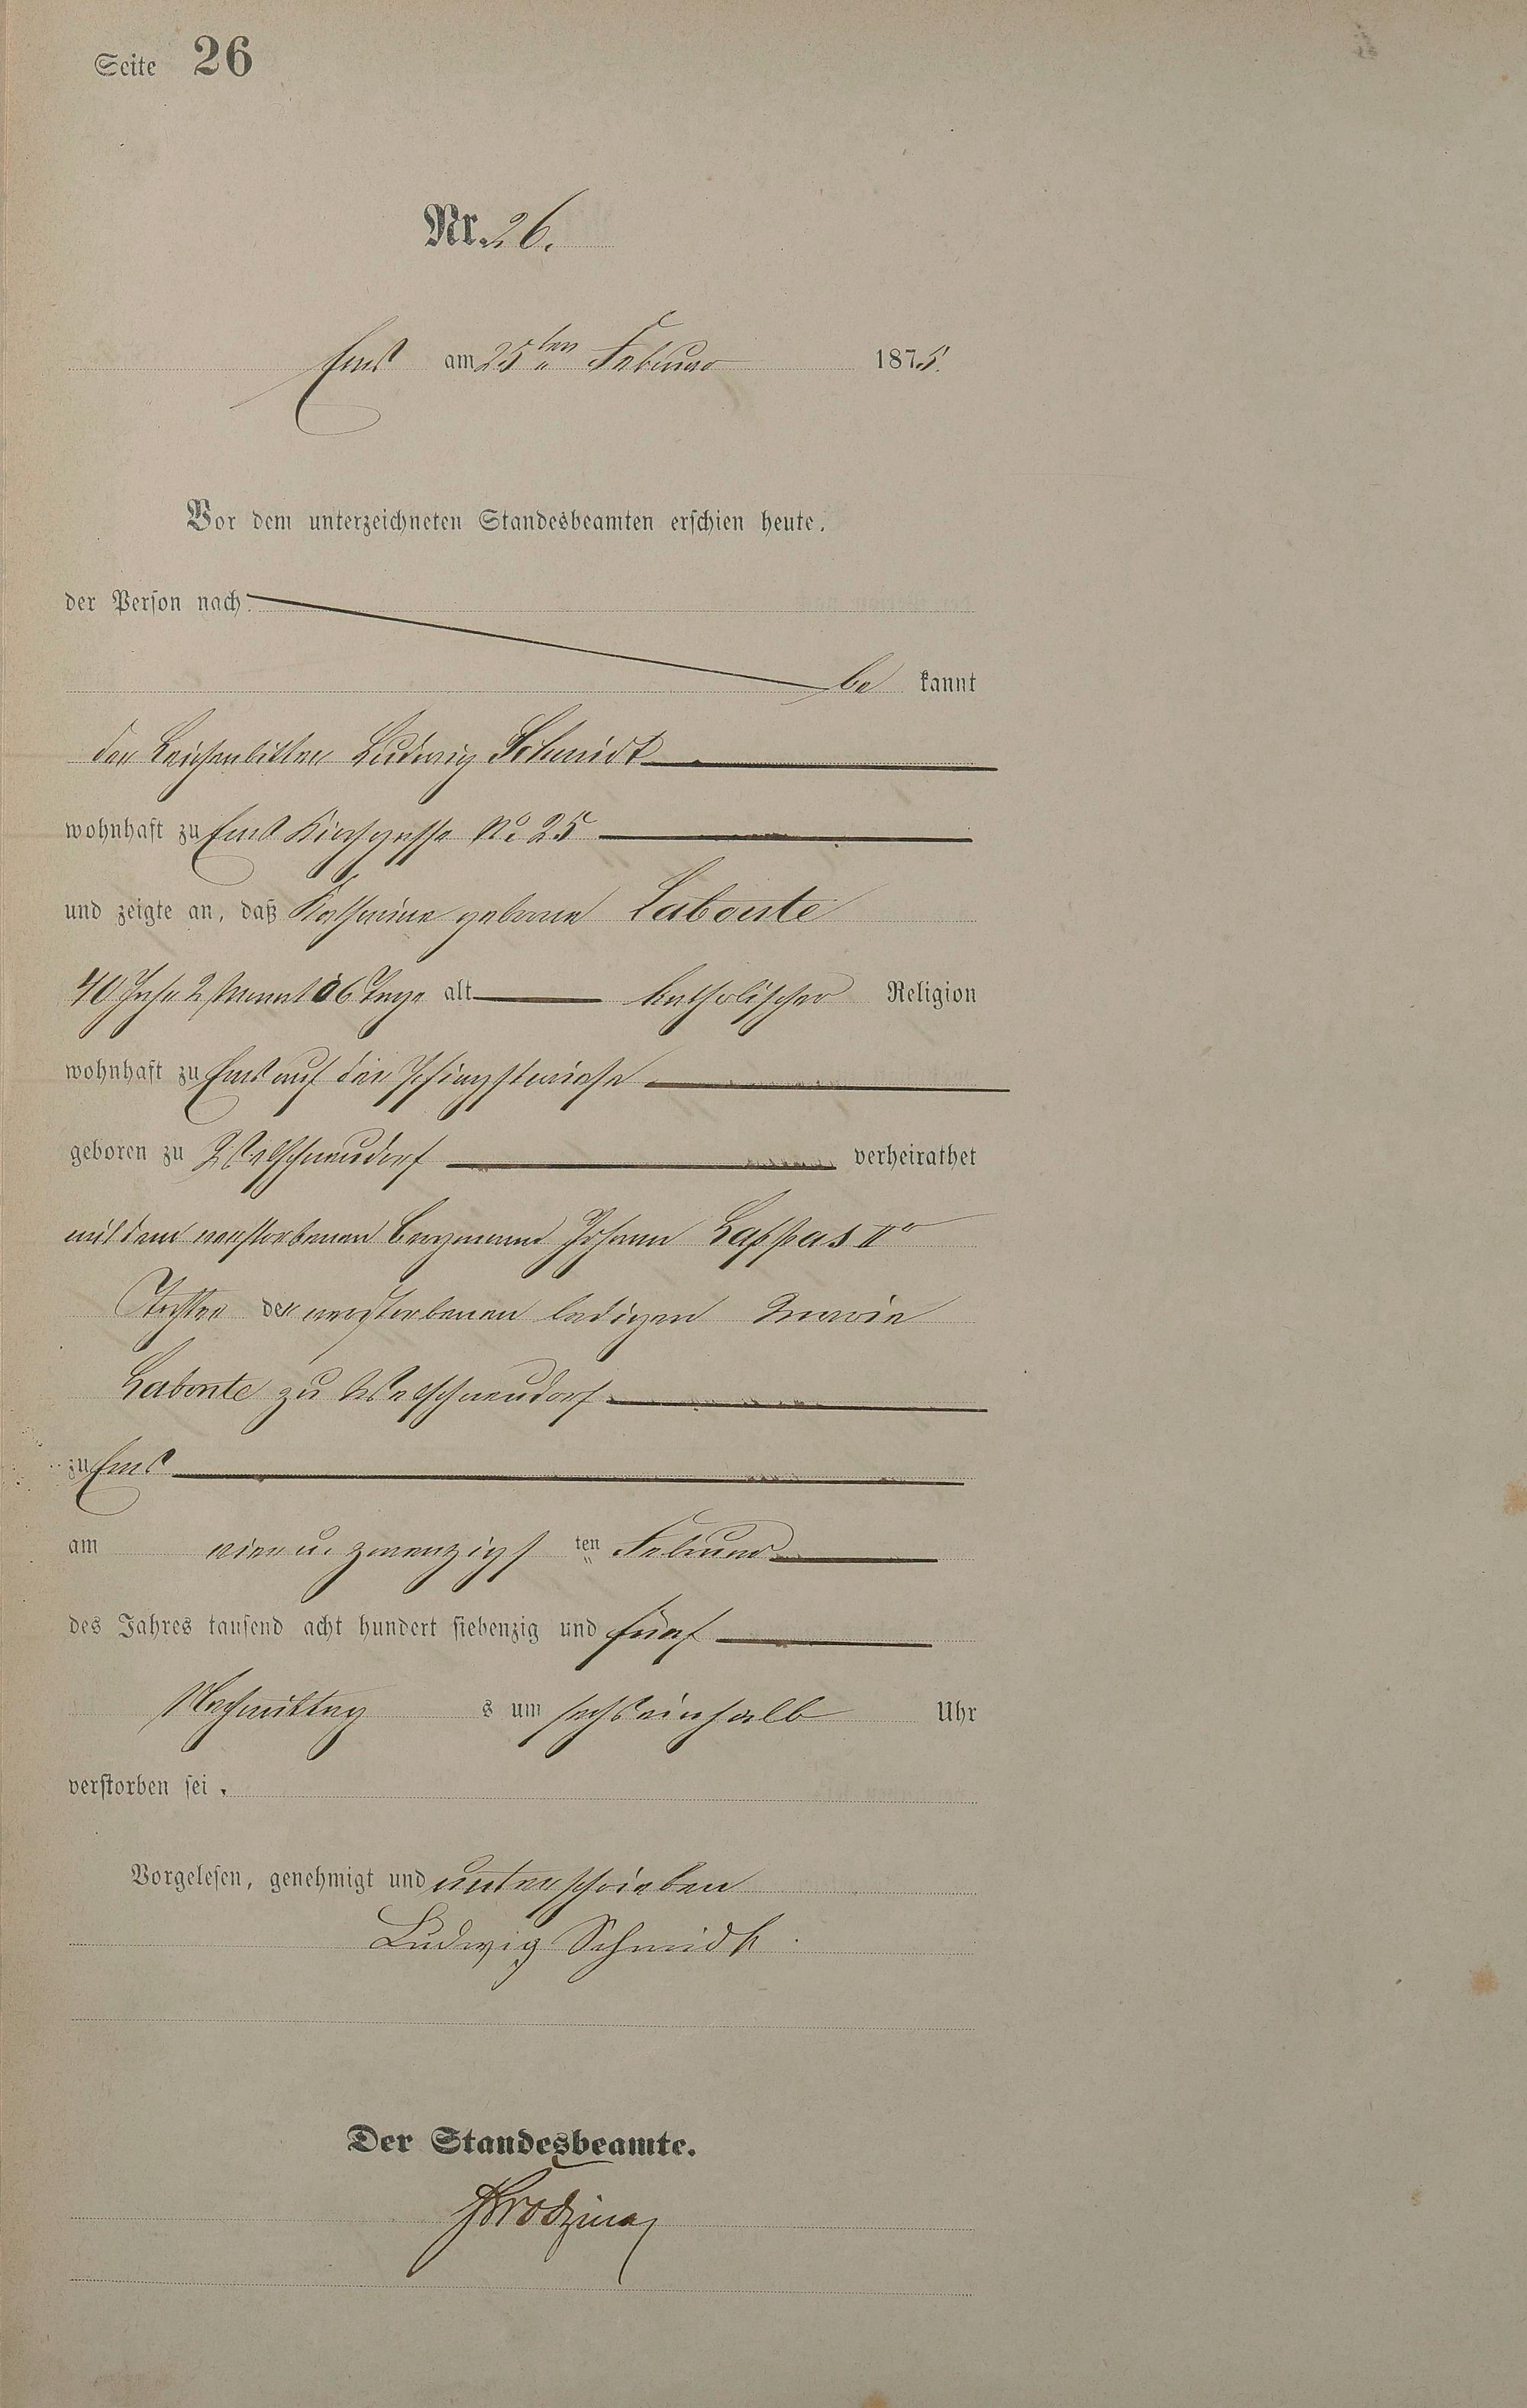 Seite 26
Nr. 26.
Ems am 25ten Februar 1875.
Vor dem unterzeichneten Standesbeamten erschien heute,
der Person nach
be kannt
der Leichenbitter Ludwig Schmidt
wohnhaft zu Ems Kirchgasse No 25
und zeigte an, daß Katharine geborne Labonte
40 Jahr 2 Monat 06 Tage alt katholischer Religion
wohnhaft zu Ems auf der Pfingstwiese
geboren zu Welschneudorf verheirathet
mit dem verstorbenen Bergmann Johann Lappas IIr
Tochter der verstorbenen ledigen Marie
Labonte zu Welschneudorf
zu Ems
am vier u. zwanzigsten Februar
des Jahres tausend acht hundert siebenzig und fünf
Nachmittag s um sechseinhalb Uhr
verstorben sei.
Vorgelesen, genehmigt und unterschrieben
Ludwig Schmidt.
Der Standesbeamte.